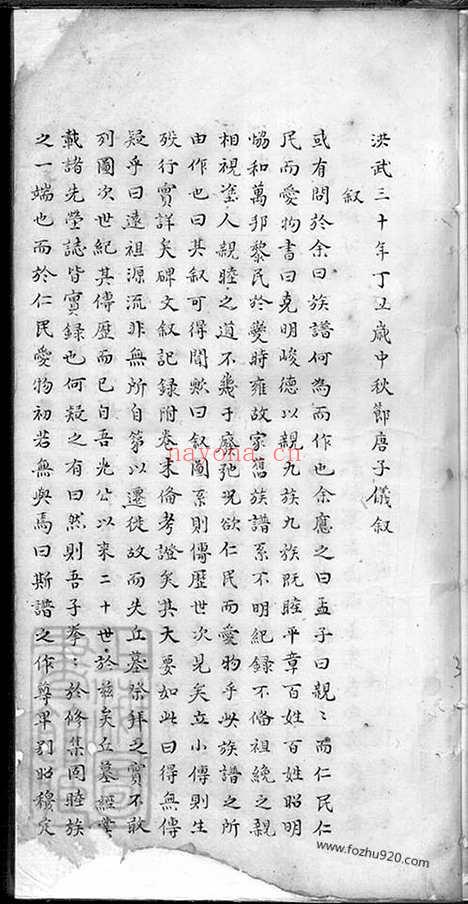 洪武三十年丁丑歲中秋節唐子儀叙
叙
或有問於余曰族譜何為而作也余應之曰孟子曰親〻而仁民仁
民而愛物書曰克明峻德以親九族九族既睦平章百姓百姓昭明
恊和萬邦黎民於變時雍故家舊族譜系不明紀録不脩祖免之親
相視塗人親睦之道不幾于廢弛况欲仁民而愛物乎此族譜之所
由作也曰其叙可得聞歟曰叙圖系則傳歷世次見矣立小傳則生
殁行實詳矣碑文叙記録附卷末俻考證矣其大要如此曰得無傳
疑乎曰遠祖源流非無所自第以遷徙故而失丘墓祭拜之實不敢
列圖次世紀其傳歷而已自吾兆公以来二十世於兹矣丘墓經當
載諸先塋誌皆實録也何疑之有曰然則吾子拳〻於修集固睦族
之一端也而於仁民愛物初若無與焉曰斯譜之作尊卑别昭穆定
nayona.cn
www.fozhu920.com